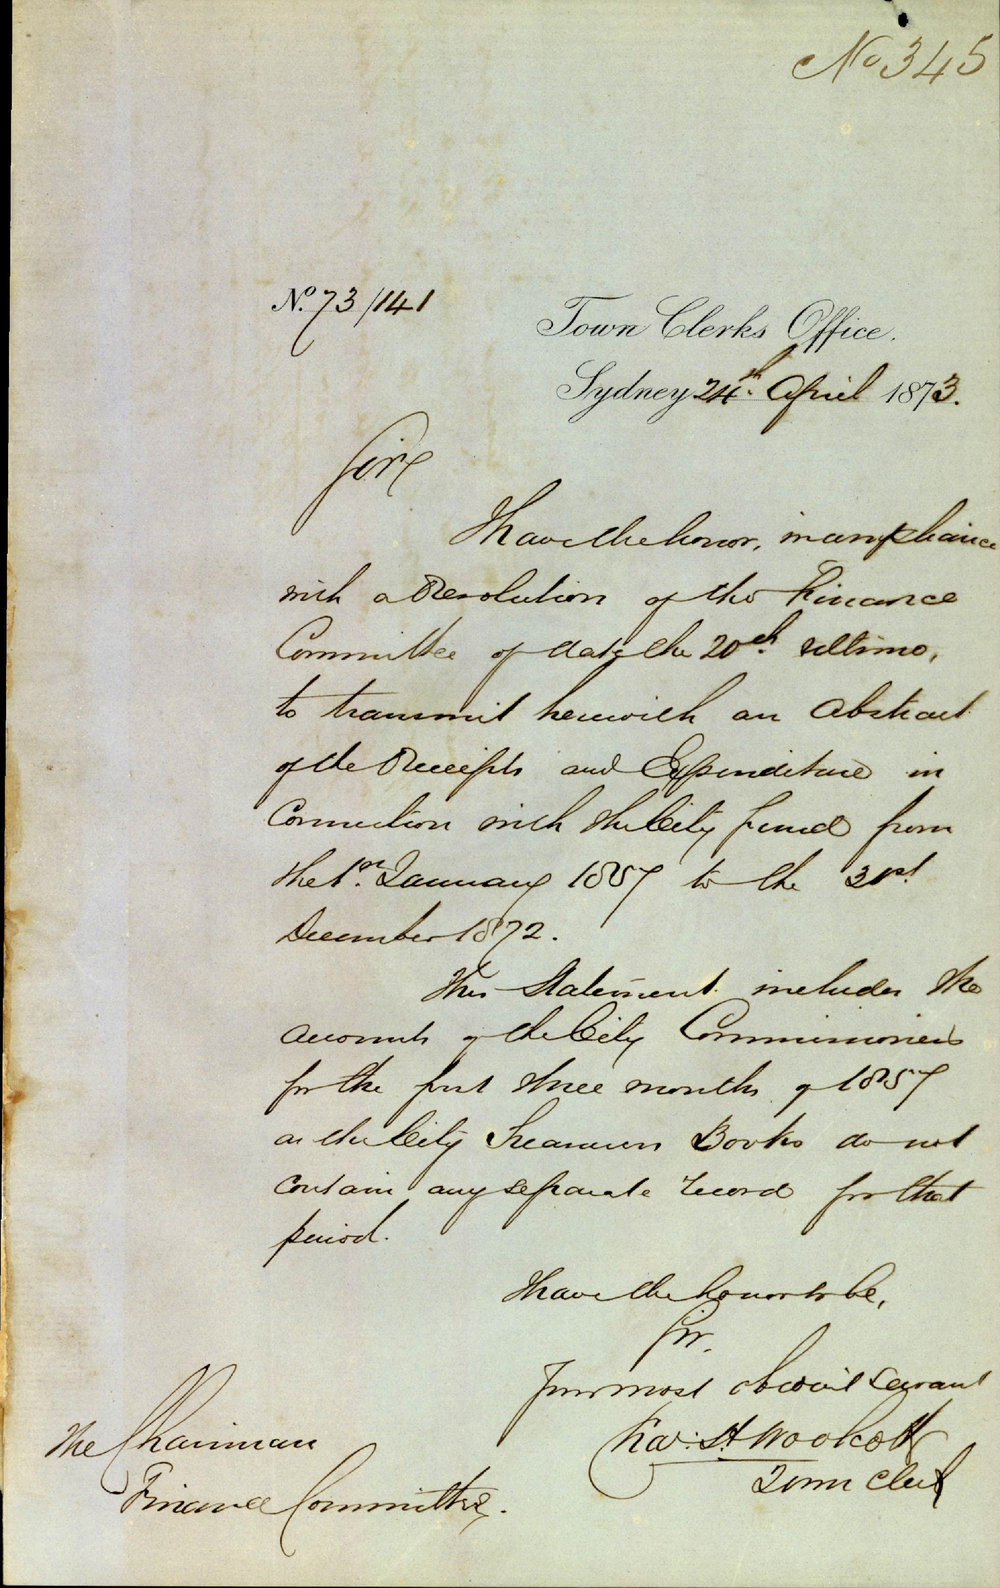 No 345
No. 73/141
Town Clerks Office.
Sydney 24th. April 1873.
Sir
I have the honor, in compliance
with a Resolution of the Finance
Committee of date the 20th. ultimo,
to transmit herewith an Abstract
of the Receipts and Expenditure in
Connection with the City Fund from
the 1st. January 1857 to the 31st.
December 1872.
This Statement includes the
accounts of the City Commissioners
for the first three months of 1857
as the City Treasurers Books do not
contain any separate record for that
period.
I have the honor to be,
Sir,
Your most obedient servant
Chas. H. Woolcott
Town Clerk
The Chairman
Finance Committee.